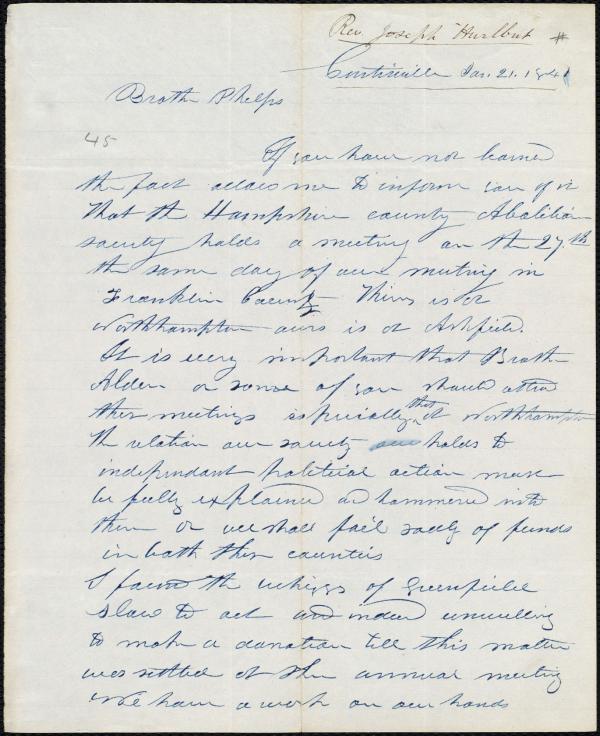 Rev. Joseph Hurlbut #
Jan. 21. 1841
Brother Phelps
45
If you have not learned
the fact allow me to inform you of it
That the Hampshire county Abolition
society holds a meeting on the 27.th
the same day of our meeting in
Franklin County Theirs is at
Northhampton ours is at Ashfield.
It is very important that Brother
Alden or some of you should attend
these meetings especially that at Northhampton
the relation our society holds to
independant political action must
be fully explained and hammered into
them or we shall fail sadly of funds
in both these counties
I found the whiggs of Greenfield
slow to act and indeed unwilling
to make a donation till this matter
was settled at the annual meeting
We have a work on our hands